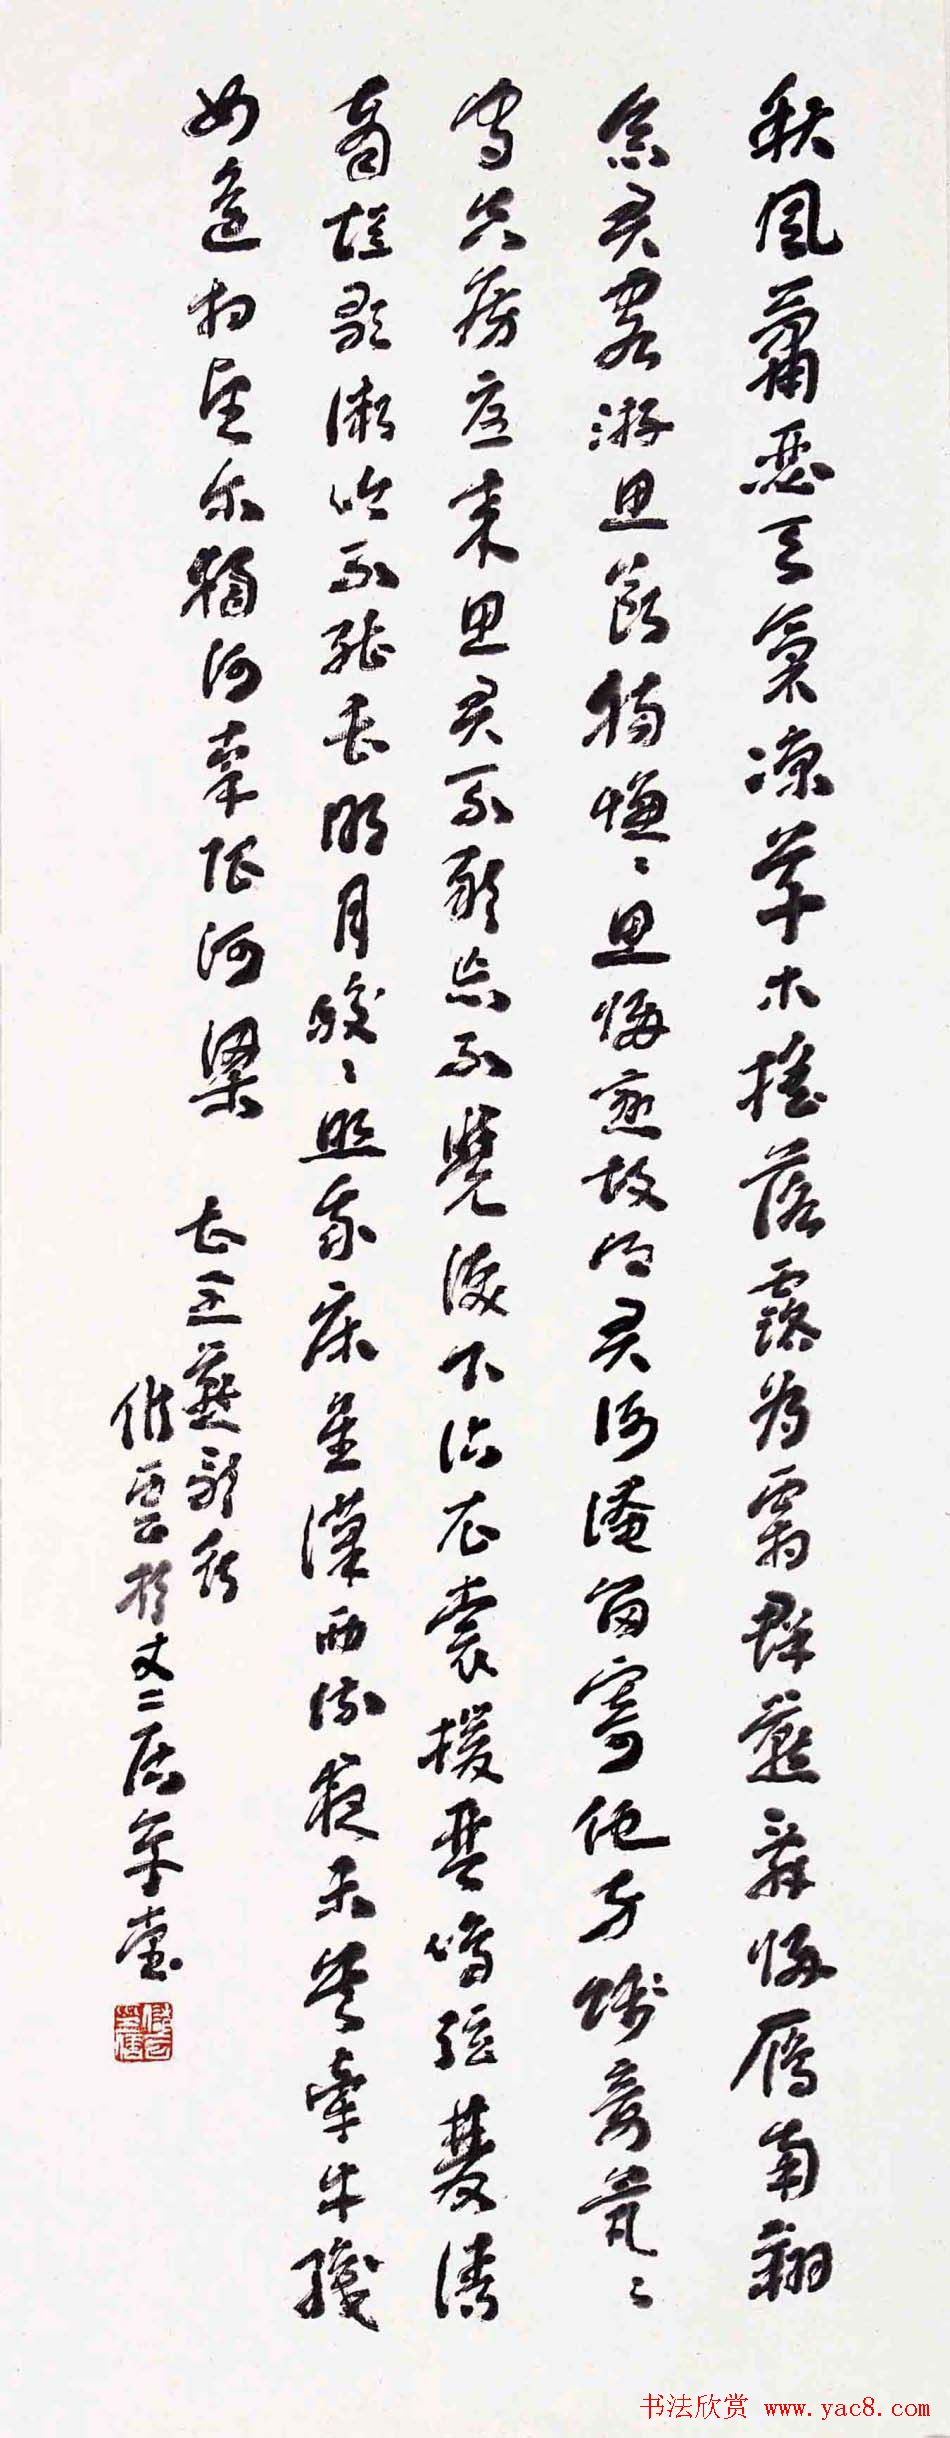 秋風蕭瑟天氣凉草木摇落露为霜群燕辭歸雁南翔
念君客游思斷腸慊〻思歸戀故鄉君何淹留寄他方賤妾煢〻
守空房憂来思君不敢忘不覺淚下沾衣裳援琴鳴弦發清
商短歌微吟不能長明月皎〻照我床星漢西流夜未央牽牛織
女遥相望爾獨何辜限河梁
丕燕歌行
雲於丈二居
书法欣赏 www.yac8.com